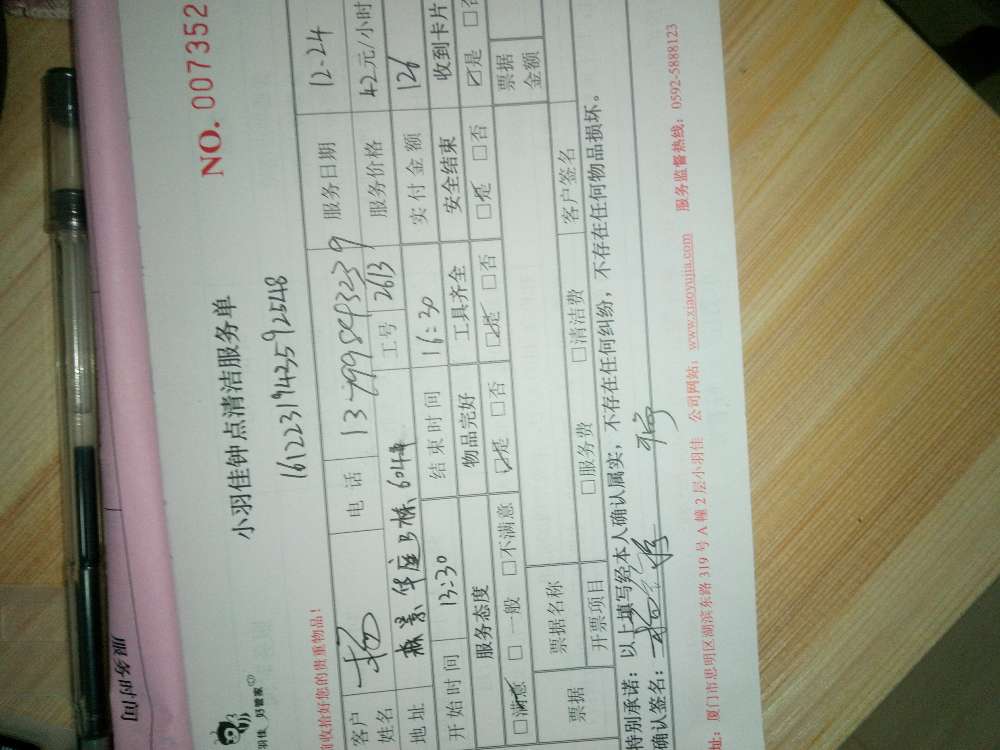 羽佳 好管家
小羽佳钟点清洁服务单
NO. 007352
161223194359 2548
收拾好您的贵重物品!
客户姓名 杨 电话 13799849323 9 服务日期 12-24
地址 华庭B栋604 工号 2613 服务价格 42元/小时
开始时间 13:30 结束时间 16:30 实付金额 126
服务态度 物品完好 工具齐全 安全结束 收到卡片
☑满意 □一般 □不满意 ☑是 □否 ☑是 □否 ☑是 □否 ☑是 □否
票据 票据名称 客户签名 票据金额
开票项目 □服务费 □清洁费
特别承诺:以上填写经本人确认属实,不存在任何纠纷,不存在任何物品损坏。
确认签名:
址:厦门市思明区湖滨东路319号A幢2层小羽佳 公司网站:www.xiaoyujia.com 服务监督热线:0592-5888123
服务时间